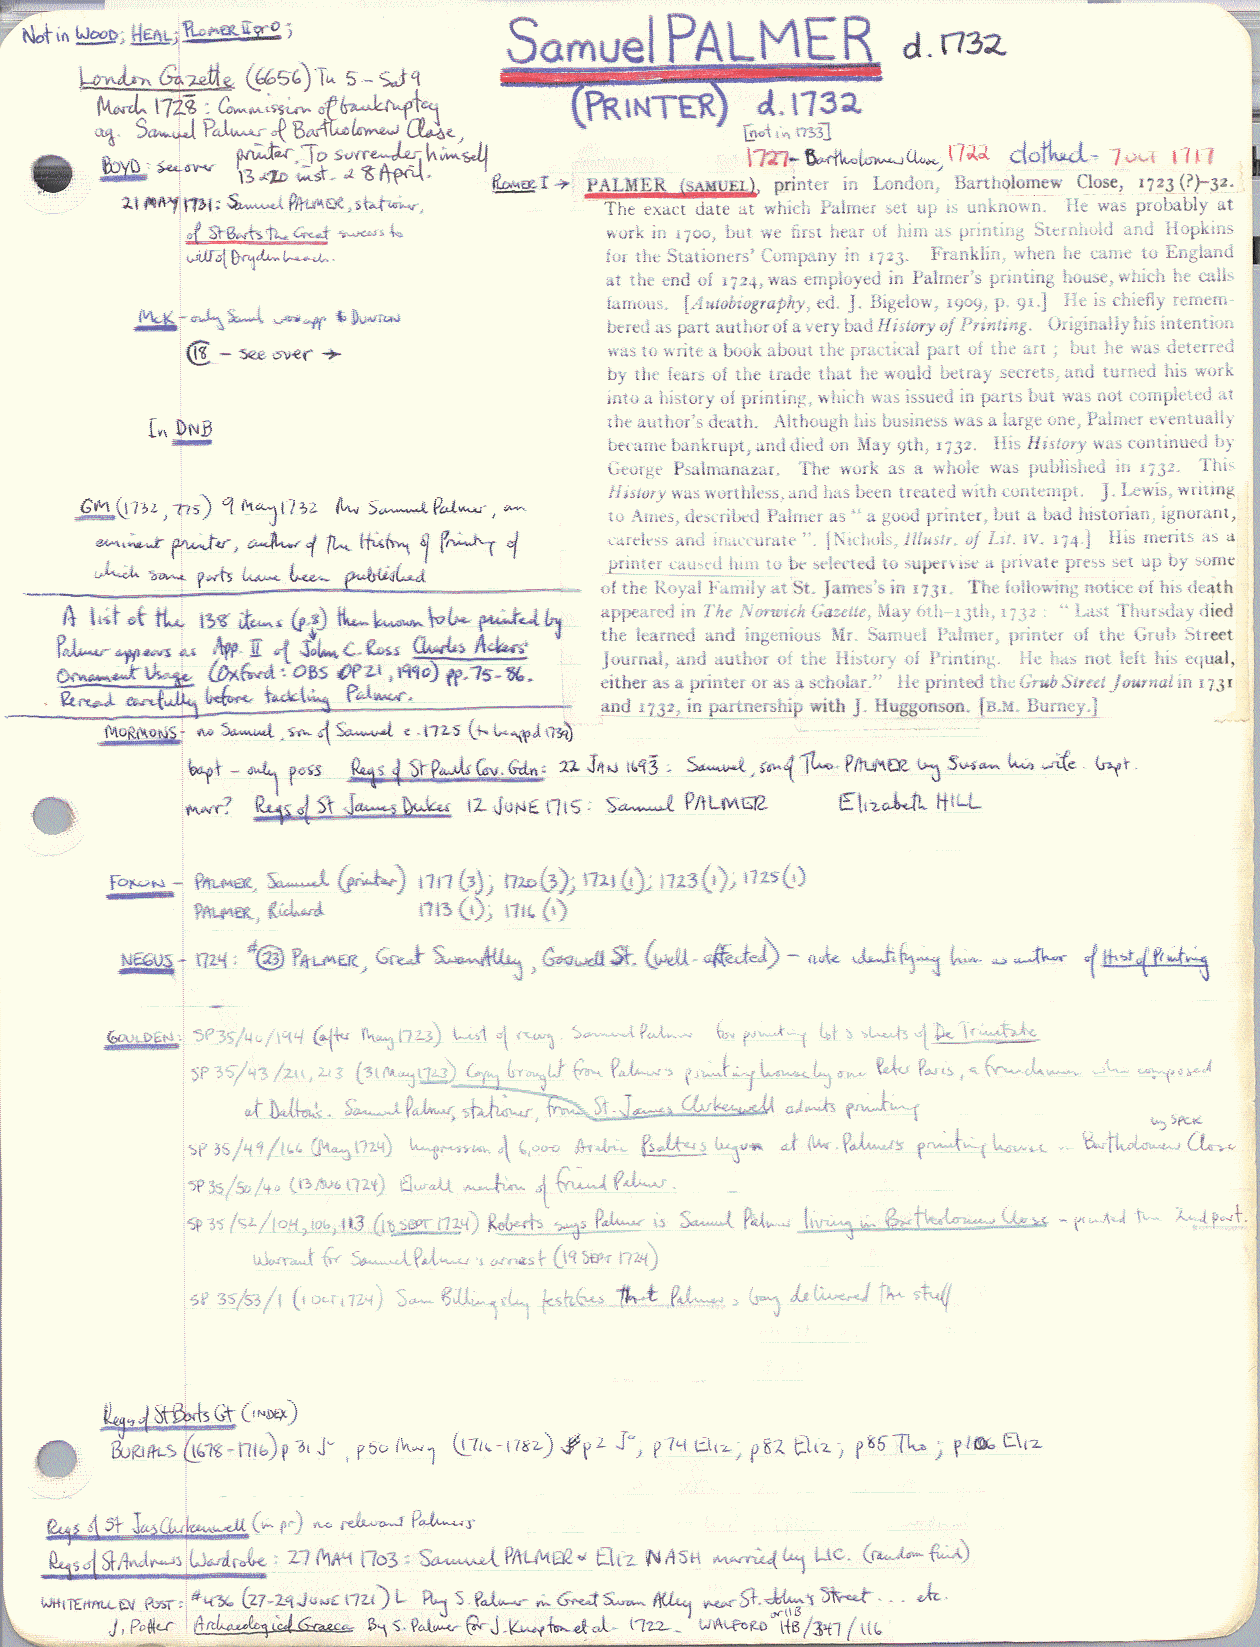 Not in WOOD; HEAL; PLOMER II & O;
Samuel PALMER d. 1732
(PRINTER) d. 1732
[not in 1733]
London Gazette (6656) Tu 5 - Sat 9
March 1728: Commission of bankruptcy
ag. Samuel Palmer of Bartholomew Close,
printer. To surrender himself
13 & 20 inst. & 8 April.
BOYD: see over
21 MAY 1731: Samuel PALMER, stationer,
of St Barts the Great swears to
will of Dryden Leach.
McK - only Saml was app to DUNTON
(18) - see over →
In DNB
GM (1732, 775) 9 May 1732 Mr Samuel Palmer, an
eminent printer, author of the History of Printing of
which some parts have been published
A list of the 138 items (p.8) then known to be printed by
Palmer appears as App. II of John C. Ross Charles Ackers'
Ornament Usage (Oxford: OBS OP 21, 1990) pp. 75-86.
Reread carefully before tackling Palmer.
1727- Bartholomew Close, 1722 clothed - 7 Oct 1717
PLOMER I →
PALMER (SAMUEL), printer in London, Bartholomew Close, 1723 (?)-32.
The exact date at which Palmer set up is unknown. He was probably at
work in 1700, but we first hear of him as printing Sternhold and Hopkins
for the Stationers' Company in 1723. Franklin, when he came to England
at the end of 1724, was employed in Palmer's printing house, which he calls
famous. [Autobiography, ed. J. Bigelow, 1909, p. 91.] He is chiefly remem-
bered as part author of a very bad History of Printing. Originally his intention
was to write a book about the practical part of the art ; but he was deterred
by the fears of the trade that he would betray secrets, and turned his work
into a history of printing, which was issued in parts but was not completed at
the author's death. Although his business was a large one, Palmer eventually
became bankrupt, and died on May 9th, 1732. His History was continued by
George Psalmanazar. The work as a whole was published in 1732. This
History was worthless, and has been treated with contempt. J. Lewis, writing
to Ames, described Palmer as " a good printer, but a bad historian, ignorant,
careless and inaccurate ". [Nichols, Illustr. of Lit. IV. 174.] His merits as a
printer caused him to be selected to supervise a private press set up by some
of the Royal Family at St. James's in 1731. The following notice of his death
appeared in The Norwich Gazette, May 6th-13th, 1732 : " Last Thursday died
the learned and ingenious Mr. Samuel Palmer, printer of the Grub Street
Journal, and author of the History of Printing. He has not left his equal,
either as a printer or as a scholar." He printed the Grub Street Journal in 1731
and 1732, in partnership with J. Huggonson. [B.M. Burney.]
MORMONS - no Samuel, son of Samuel c. 1725 (to be app'd 1739)
bapt - only poss Regs of St Pauls Cov. Gdn: 22 JAN 1693: Samuel, son of Tho. PALMER by Susan his wife. bapt.
marr? Regs of St James Dukes 12 JUNE 1715: Samuel PALMER Elizabeth HILL
FOXON - PALMER, Samuel (printer) 1717 (3); 1720 (3); 1721 (1); 1723 (1); 1725 (1)
PALMER, Richard 1713 (1); 1716 (1)
NEGUS - 1724: #(23) PALMER, Great Swan Alley, Goswell St. (well-affected) - note identifying him as author of Hist of Printing
GOULDEN: SP 35/40/194 (after May 1723) Samuel Palmer for printing 1st 3 sheets of De Trinitate
SP 35/43/211, 213 (31 May 1723) Copy brought from Palmer's printing house by one Peter Paris, a frenchman who composed
at Dalton's. Samuel Palmer, stationer, from St. James Clerkenwell admits printing
SP 35/49/166 (May 1724) Impression of 6,000 Arabic Psalters begun at Mr. Palmer's printing house in Bartholomew Close
by SPCK
SP 35/50/40 (13 AUG 1724) Elwall mention of friend Palmer.
SP 35/52/104, 106, 113 (18 SEPT 1724) Roberts says Palmer is Samuel Palmer living in Bartholomew Close - printed the 2nd part.
Warrant for Samuel Palmer's arrest (19 SEPT 1724)
SP 35/53/1 (1 Oct 1724) Sam Billingsley testifies that Palmer's boy delivered the stuff
Regs of St Barts Gt (INDEX)
BURIALS (1678-1716) p 31 Jo, p 50 Mary (1716-1782) p 2 Jo, p 74 Eliz; p 82 Eliz; p 85 Tho; p 106 Eliz
Regs of St Jas Clerkenwell (in pr) no relevant Palmers
Regs of St Andrews Wardrobe: 27 MAY 1703: Samuel PALMER & Eliz NASH married by LIC. (random find)
WHITEHALL EV POST: #436 (27-29 JUNE 1721) L Pbg S. Palmer in Great Swan Alley near St. John's Street ... etc.
J. Potter Archaeologia Graeca By S. Palmer for J. Knapton et al - 1722. WALFORD HB/347/116
or 11B